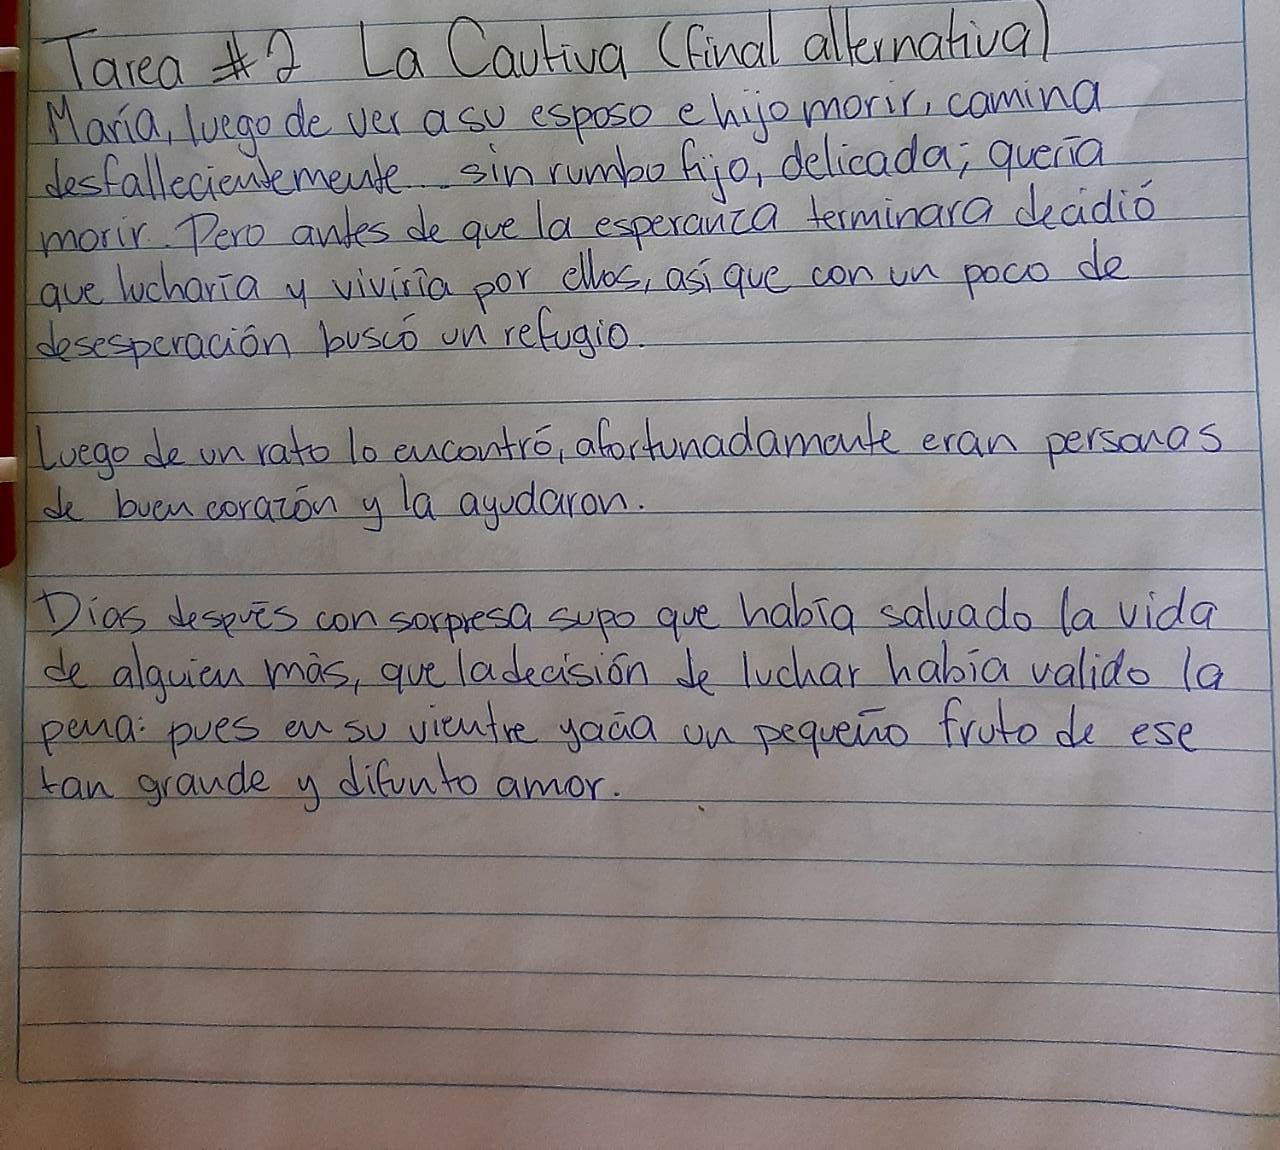 Tarea #2 La Cautiva (final alternativa)
María, luego de ver a su esposo e hijo morir, camina
desfallecientemente sin rumbo fijo, delicada; quería
morir. Pero antes de que la esperanza terminara decidió
que lucharía y viviría por ellos, así que con un poco de
desesperación buscó un refugio.
Luego de un rato lo encontró, afortunadamente eran personas
de buen corazón y la ayudaron.
Días después con sorpresa supo que había salvado la vida
de alguien más, que la decisión de luchar había valido la
pena: pues en su vientre yacía un pequeño fruto de ese
tan grande y difunto amor.